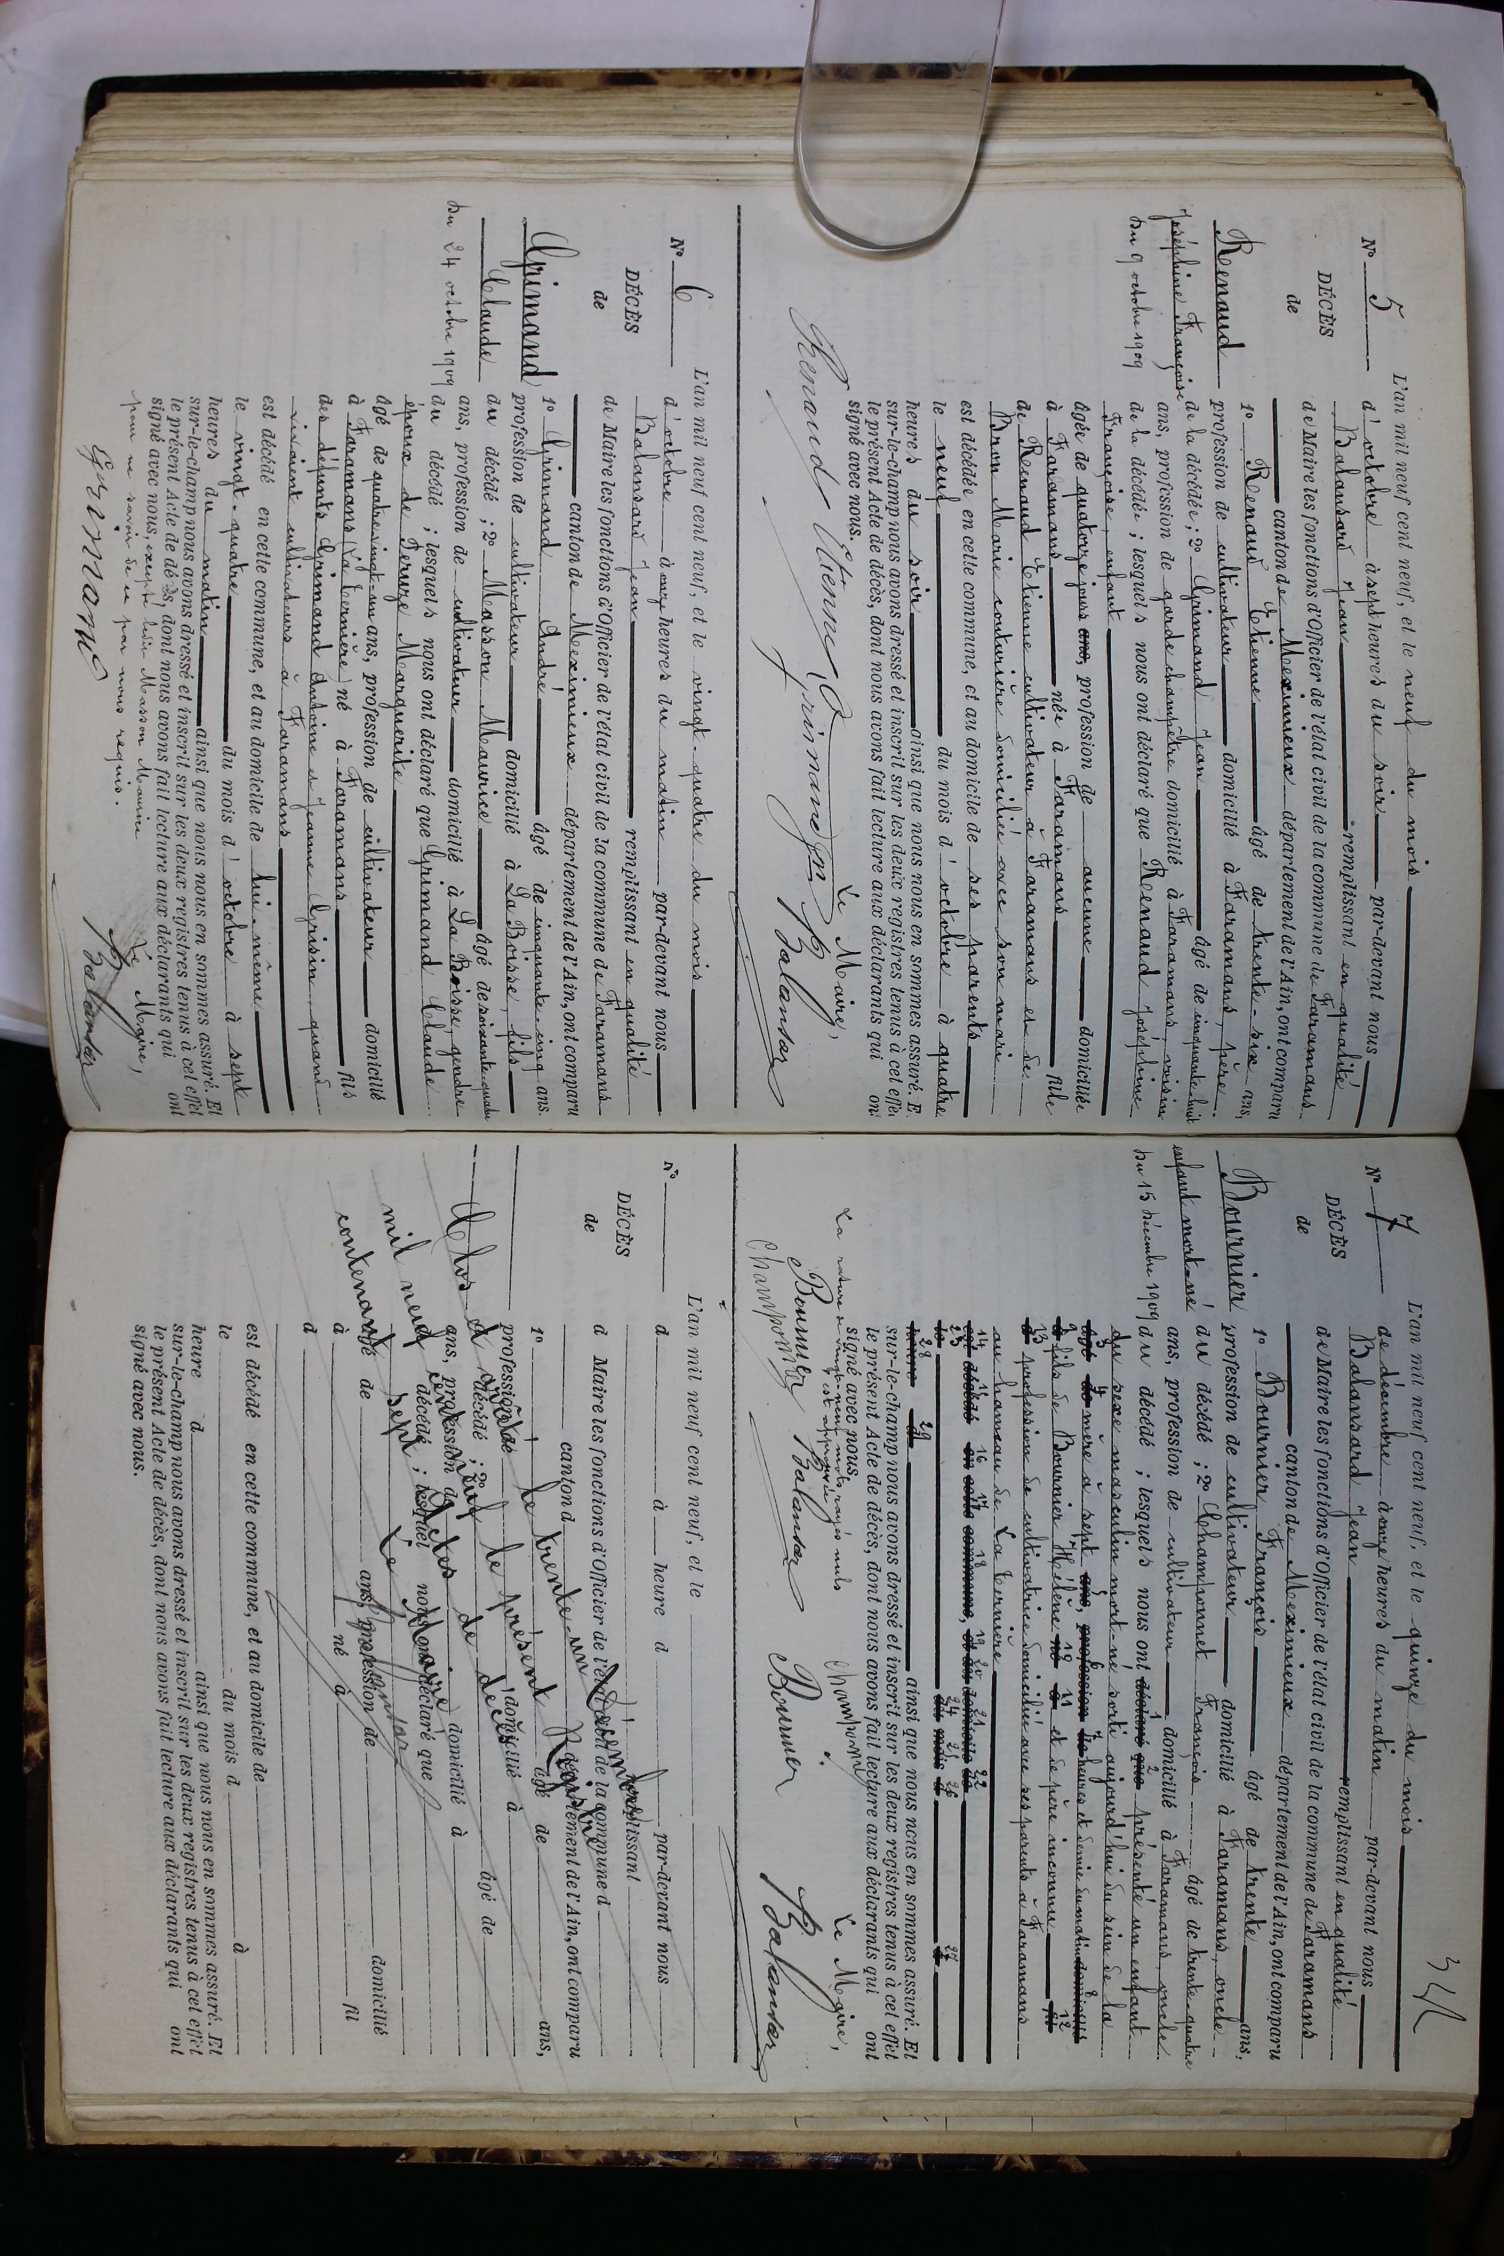 N° 5
DÉCÈS
de
Renaud
Joséphine Françoise
du 9 octobre 1909
L'an mil neuf cent neuf, et le neuf du mois
d'octobre à sept heures du soir par-devant nous
Balansard Jean remplissant en qualité
de Maire les fonctions d'Officier de l'état civil de la commune de Faramans
canton de Meximieux département de l'Ain, ont comparu
1° Renaud Etienne âgé de trente-six ans,
profession de cultivateur domicilié à Faramans, père
de la décédée; 2° Grimand Jean âgé de cinquante huit
ans, profession de garde champêtre domicilié à Faramans, voisin
de la décédée; lesquels nous ont déclaré que Renaud Joséphine
Françoise, enfant
âgée de quatorze jours ans, profession de aucune domiciliée
à Faramans née à Faramans fille
de Renaud Etienne cultivateur à Faramans et de
Bron Marie couturière domiciliée avec son mari
est décédée en cette commune, et au domicile de ses parents
le neuf du mois d'octobre à quatre
heures du soir ainsi que nous nous en sommes assuré. Et
sur-le-champ nous avons dressé et inscrit sur les deux registres tenus à cet effet
le présent Acte de décès, dont nous avons fait lecture aux déclarants qui ont
signé avec nous.
Le Maire,
Renaud Etienne Grimand Balansard
N° 6
DÉCÈS
de
Grimand
Claude
du 24 octobre 1909
L'an mil neuf cent neuf, et le vingt-quatre du mois
d'octobre à onze heures du matin par-devant nous
Balansard Jean remplissant en qualité
de Maire les fonctions d'Officier de l'état civil de la commune de Faramans
canton de Meximieux département de l'Ain, ont comparu
1° Grimand André âgé de cinquante-cinq ans,
profession de cultivateur domicilié à La Boisse, fils
du décédé; 2° Masson Maurice âgé de soixante-quatre
ans, profession de cultivateur domicilié à La Boisse, gendre
du décédé; lesquels nous ont déclaré que Grimand Claude
époux de Ferure Marguerite
âgé de quatre vingt-un ans, profession de cultivateur domicilié
à Faramans (La Cernière) né à Faramans fils
des défunts Grimand Antoine et Jeanne Grisin quand
vivaient cultivateurs à Faramans
est décédé en cette commune, et au domicile de lui-même
le vingt-quatre du mois d'octobre à sept
heures du matin ainsi que nous nous en sommes assuré. Et
sur-le-champ nous avons dressé et inscrit sur les deux registres tenus à cet effet
le présent Acte de décès, dont nous avons fait lecture aux déclarants qui ont
signé avec nous, excepté lui Masson Maurice
pour ne savoir de ce par nous requis.
Le Maire,
Grimand Balansard
34
N° 7
DÉCÈS
de
Bournier
enfant mort-né
du 15 décembre 1909
L'an mil neuf cent neuf, et le quinze du mois
de décembre à onze heures du matin par-devant nous
Balansard Jean remplissant en qualité
de Maire les fonctions d'Officier de l'état civil de la commune de Faramans
canton de Meximieux département de l'Ain, ont comparu
1° Bournier François âgé de trente ans,
profession de cultivateur domicilié à Faramans, oncle
du décédé; 2° Champonnet François âgé de trente quatre
ans, profession de cultivateur domicilié à Faramans, oncle
du décédé; lesquels nous ont déclaré que présenté un enfant
du sexe masculin mort-né sorti aujourd'hui du sein de la
âgé de mère à sept ans, profession de heures et demie du matin domicilié
à fils de Bournier Hélène né à et de père inconnu fil
d profession de cultivatrice domiciliée avec ses parents à Faramans
au hameau de La Cernière
est décédé en cette commune, et au domicile de
le du mois d à
heure d ainsi que nous nous en sommes assuré. Et
sur-le-champ nous avons dressé et inscrit sur les deux registres tenus à cet effet
le présent Acte de décès, dont nous avons fait lecture aux déclarants qui ont
signé avec nous.
La rature de vingt-neuf mots rayés nuls
est approuvée
Le Maire,
Bournier Balansard Champonnet Bournier Balansard
Champonnet
N°
DÉCÈS
de
L'an mil neuf cent neuf, et le
d à heure d par-devant nous
remplissant
d Maire les fonctions d'Officier de l'état civil de la commune d
canton d département de l'Ain, ont comparu
1° âgé de ans,
profession de domicilié à
décédé; 2° âgé de
ans, profession de domicilié à
décédé; lesquels nous ont déclaré que
âgé de ans, profession de domicilié
à né à fil
d
est décédé en cette commune, et au domicile de
le du mois d à
heure d ainsi que nous nous en sommes assuré. Et
sur-le-champ nous avons dressé et inscrit sur les deux registres tenus à cet effet
le présent Acte de décès, dont nous avons fait lecture aux déclarants qui ont
signé avec nous.
Clos et arrêté le trente-un Décembre
mil neuf cent neuf le présent Registre
contenant sept actes de décès
Le Maire
Balansard